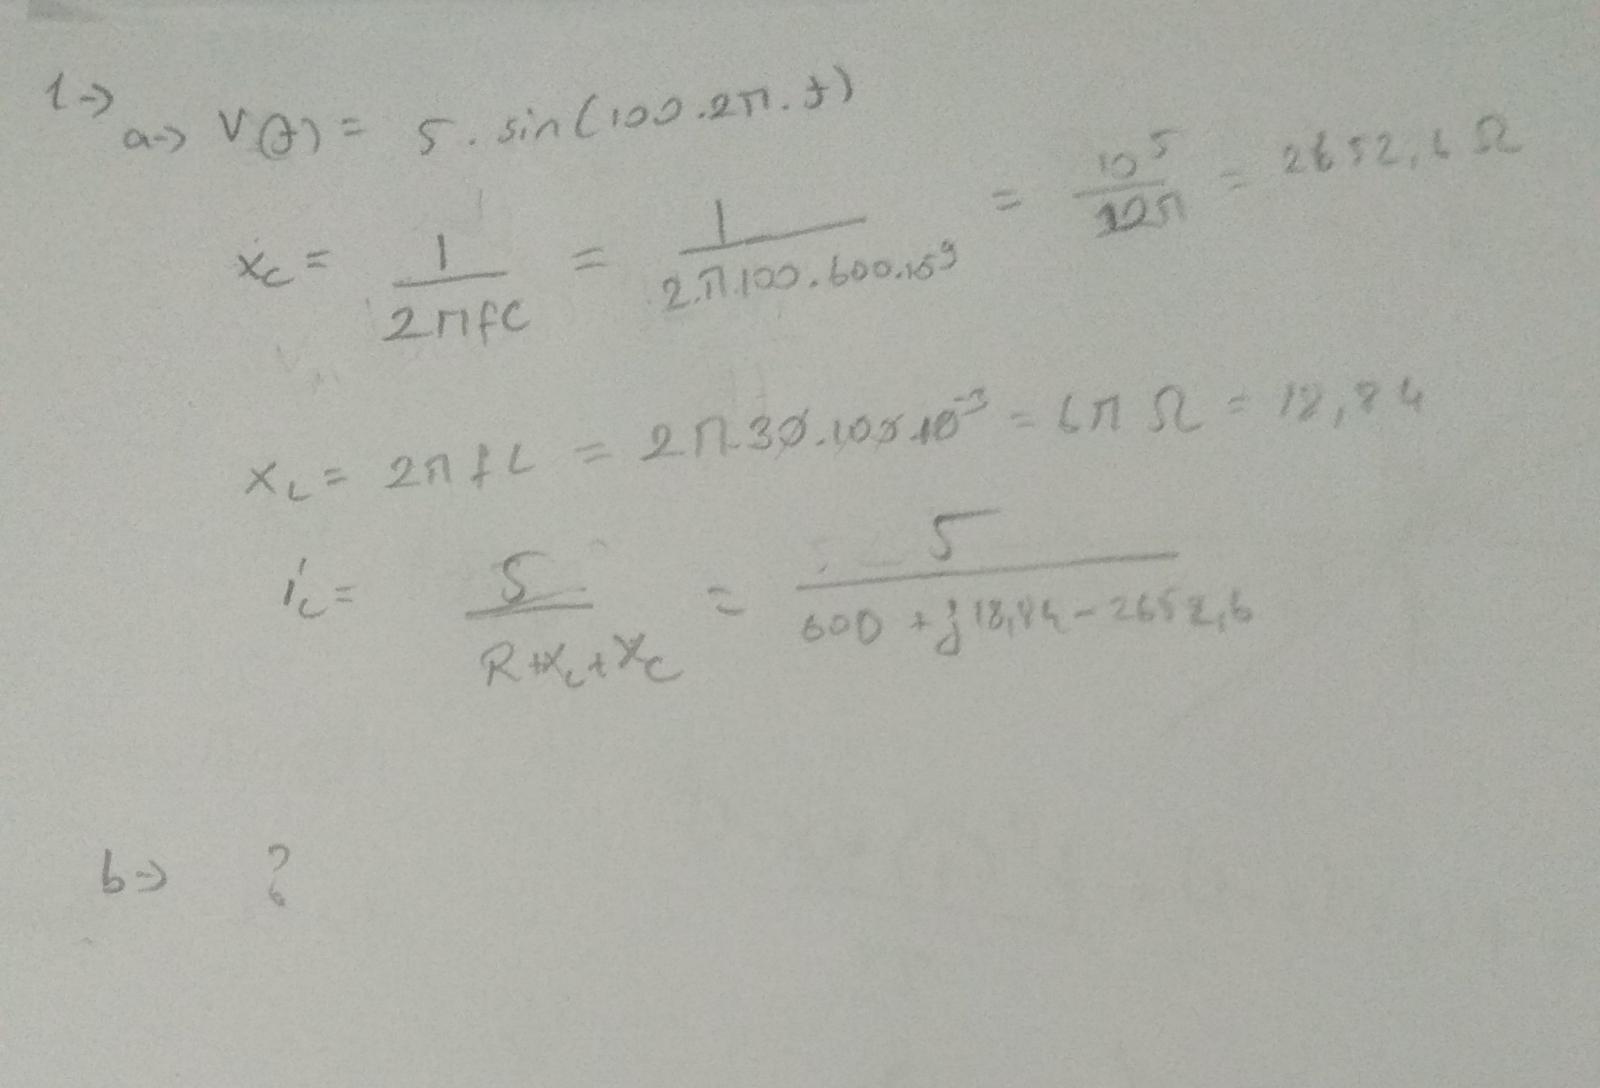 1->
a-> V(t) = 5 . sin(100.2π.t)
Xc = 1 / 2πfC = 1 / 2.π.100.600.10^9 = 10^5 / 12π = 2652,6 Ω
XL = 2πfL = 2π.30.100.10^-3 = 6π Ω = 18,84
ic = 5 / R+XL+Xc = 5 / 600 + j18,84 - 2652,6
b-> ?